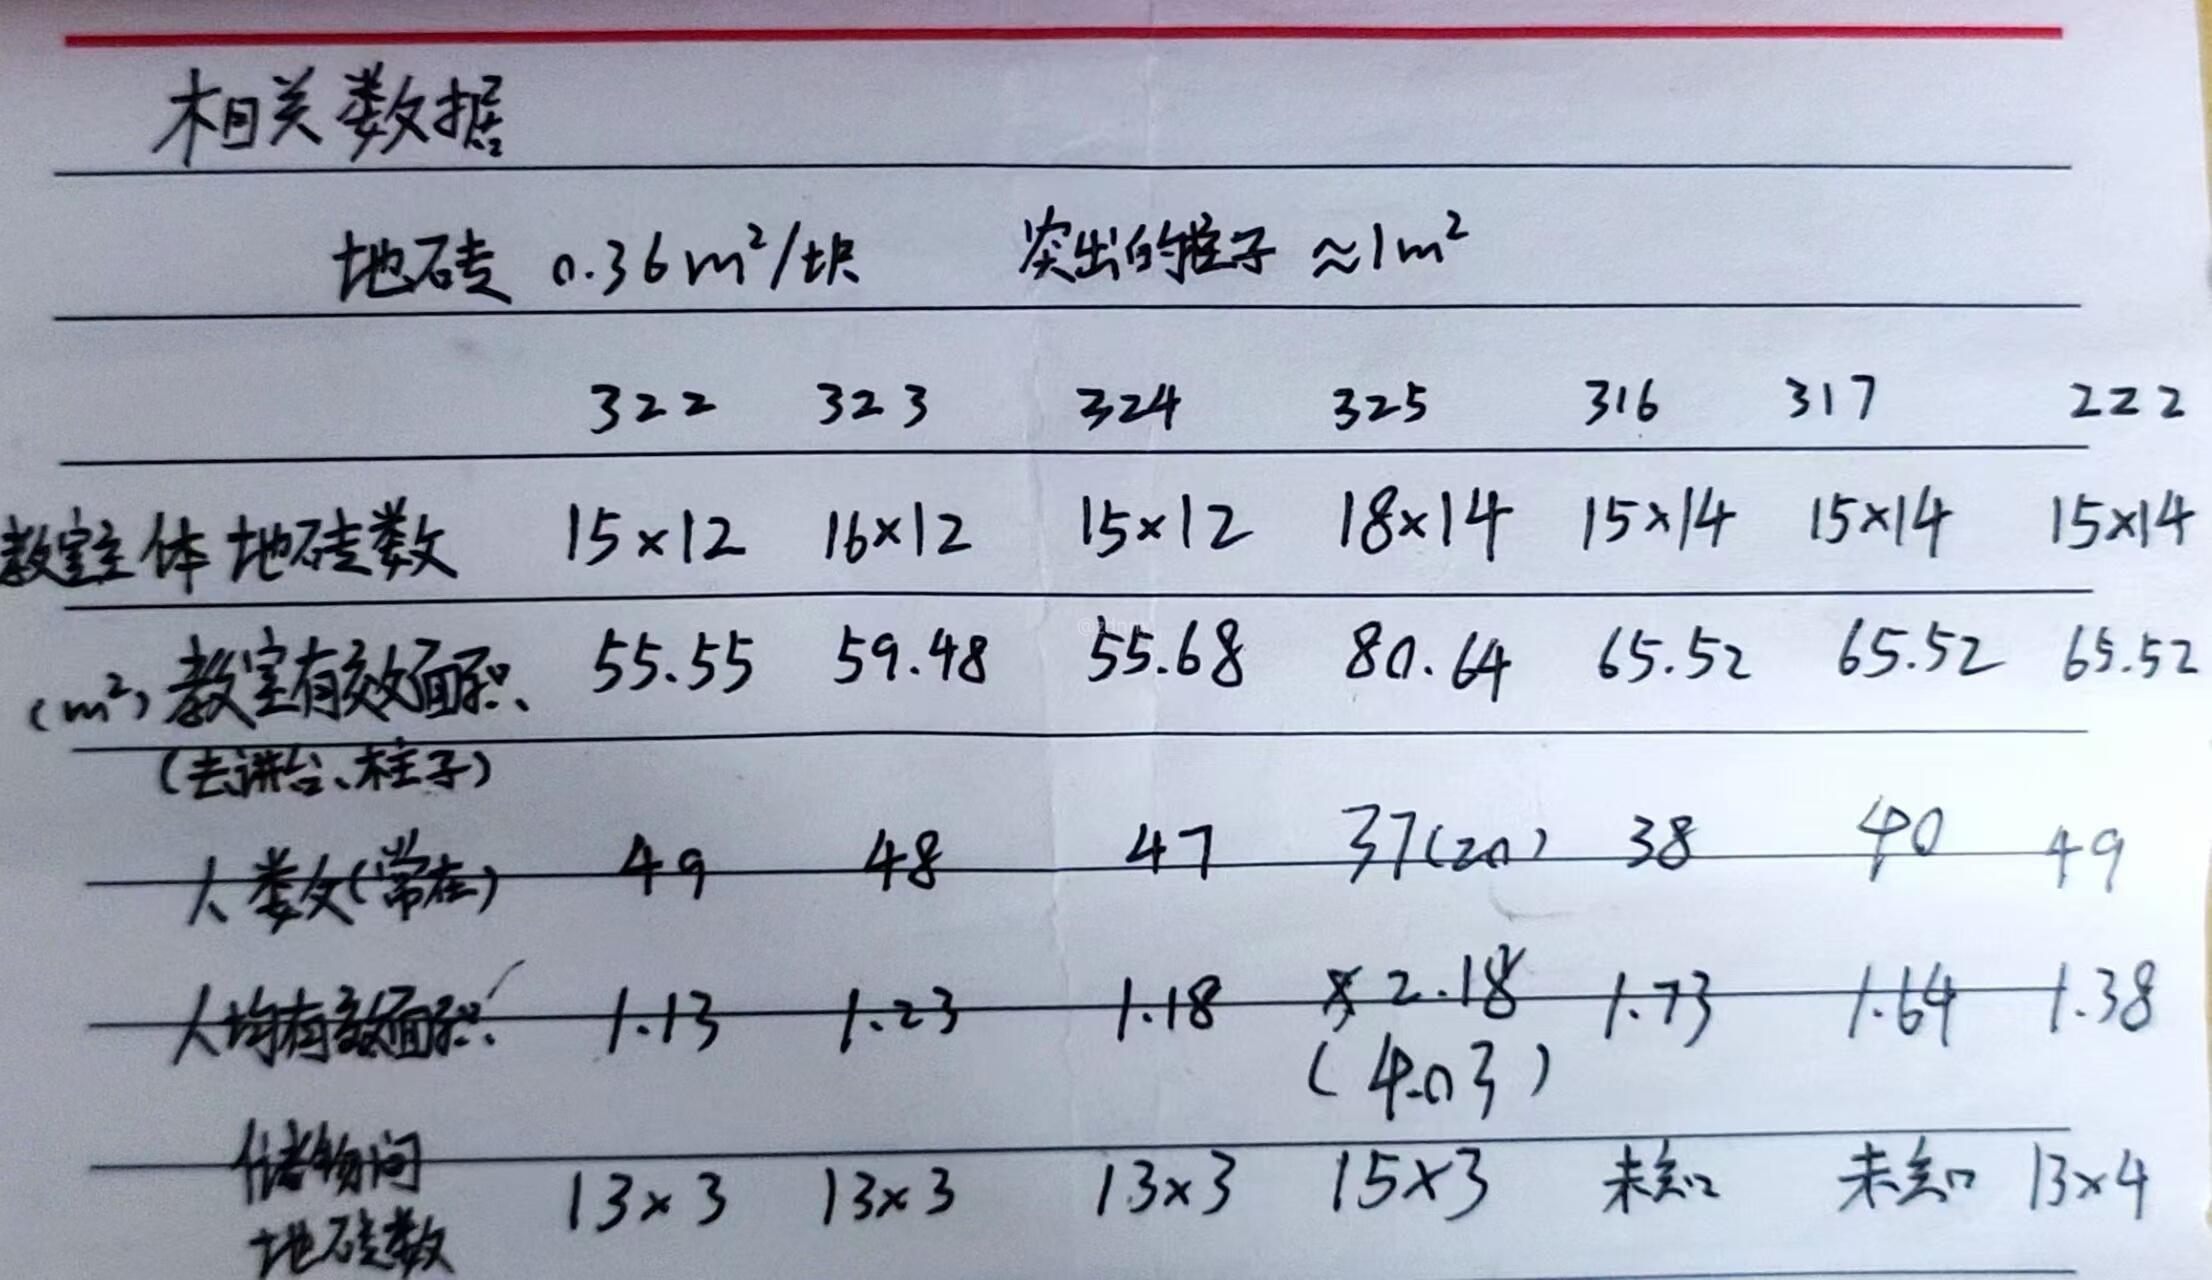 相关数据
地砖 0.36m²/块 突出的柱子 ≈1m²
322 323 324 325 316 317 222
教室主体地砖数 15×12 16×12 15×12 18×14 15×14 15×14 15×14
(m²) 教室有效面积 55.55 59.48 55.68 80.64 65.52 65.52 65.52
(去讲台、柱子)
人数(常在) 49 48 47 37(20) 38 40 49
人均有效面积 1.13 1.23 1.18 2.18 1.73 1.64 1.38
(4.03)
储物间 13×3 13×3 13×3 15×3 未知 未知 13×4
地砖数